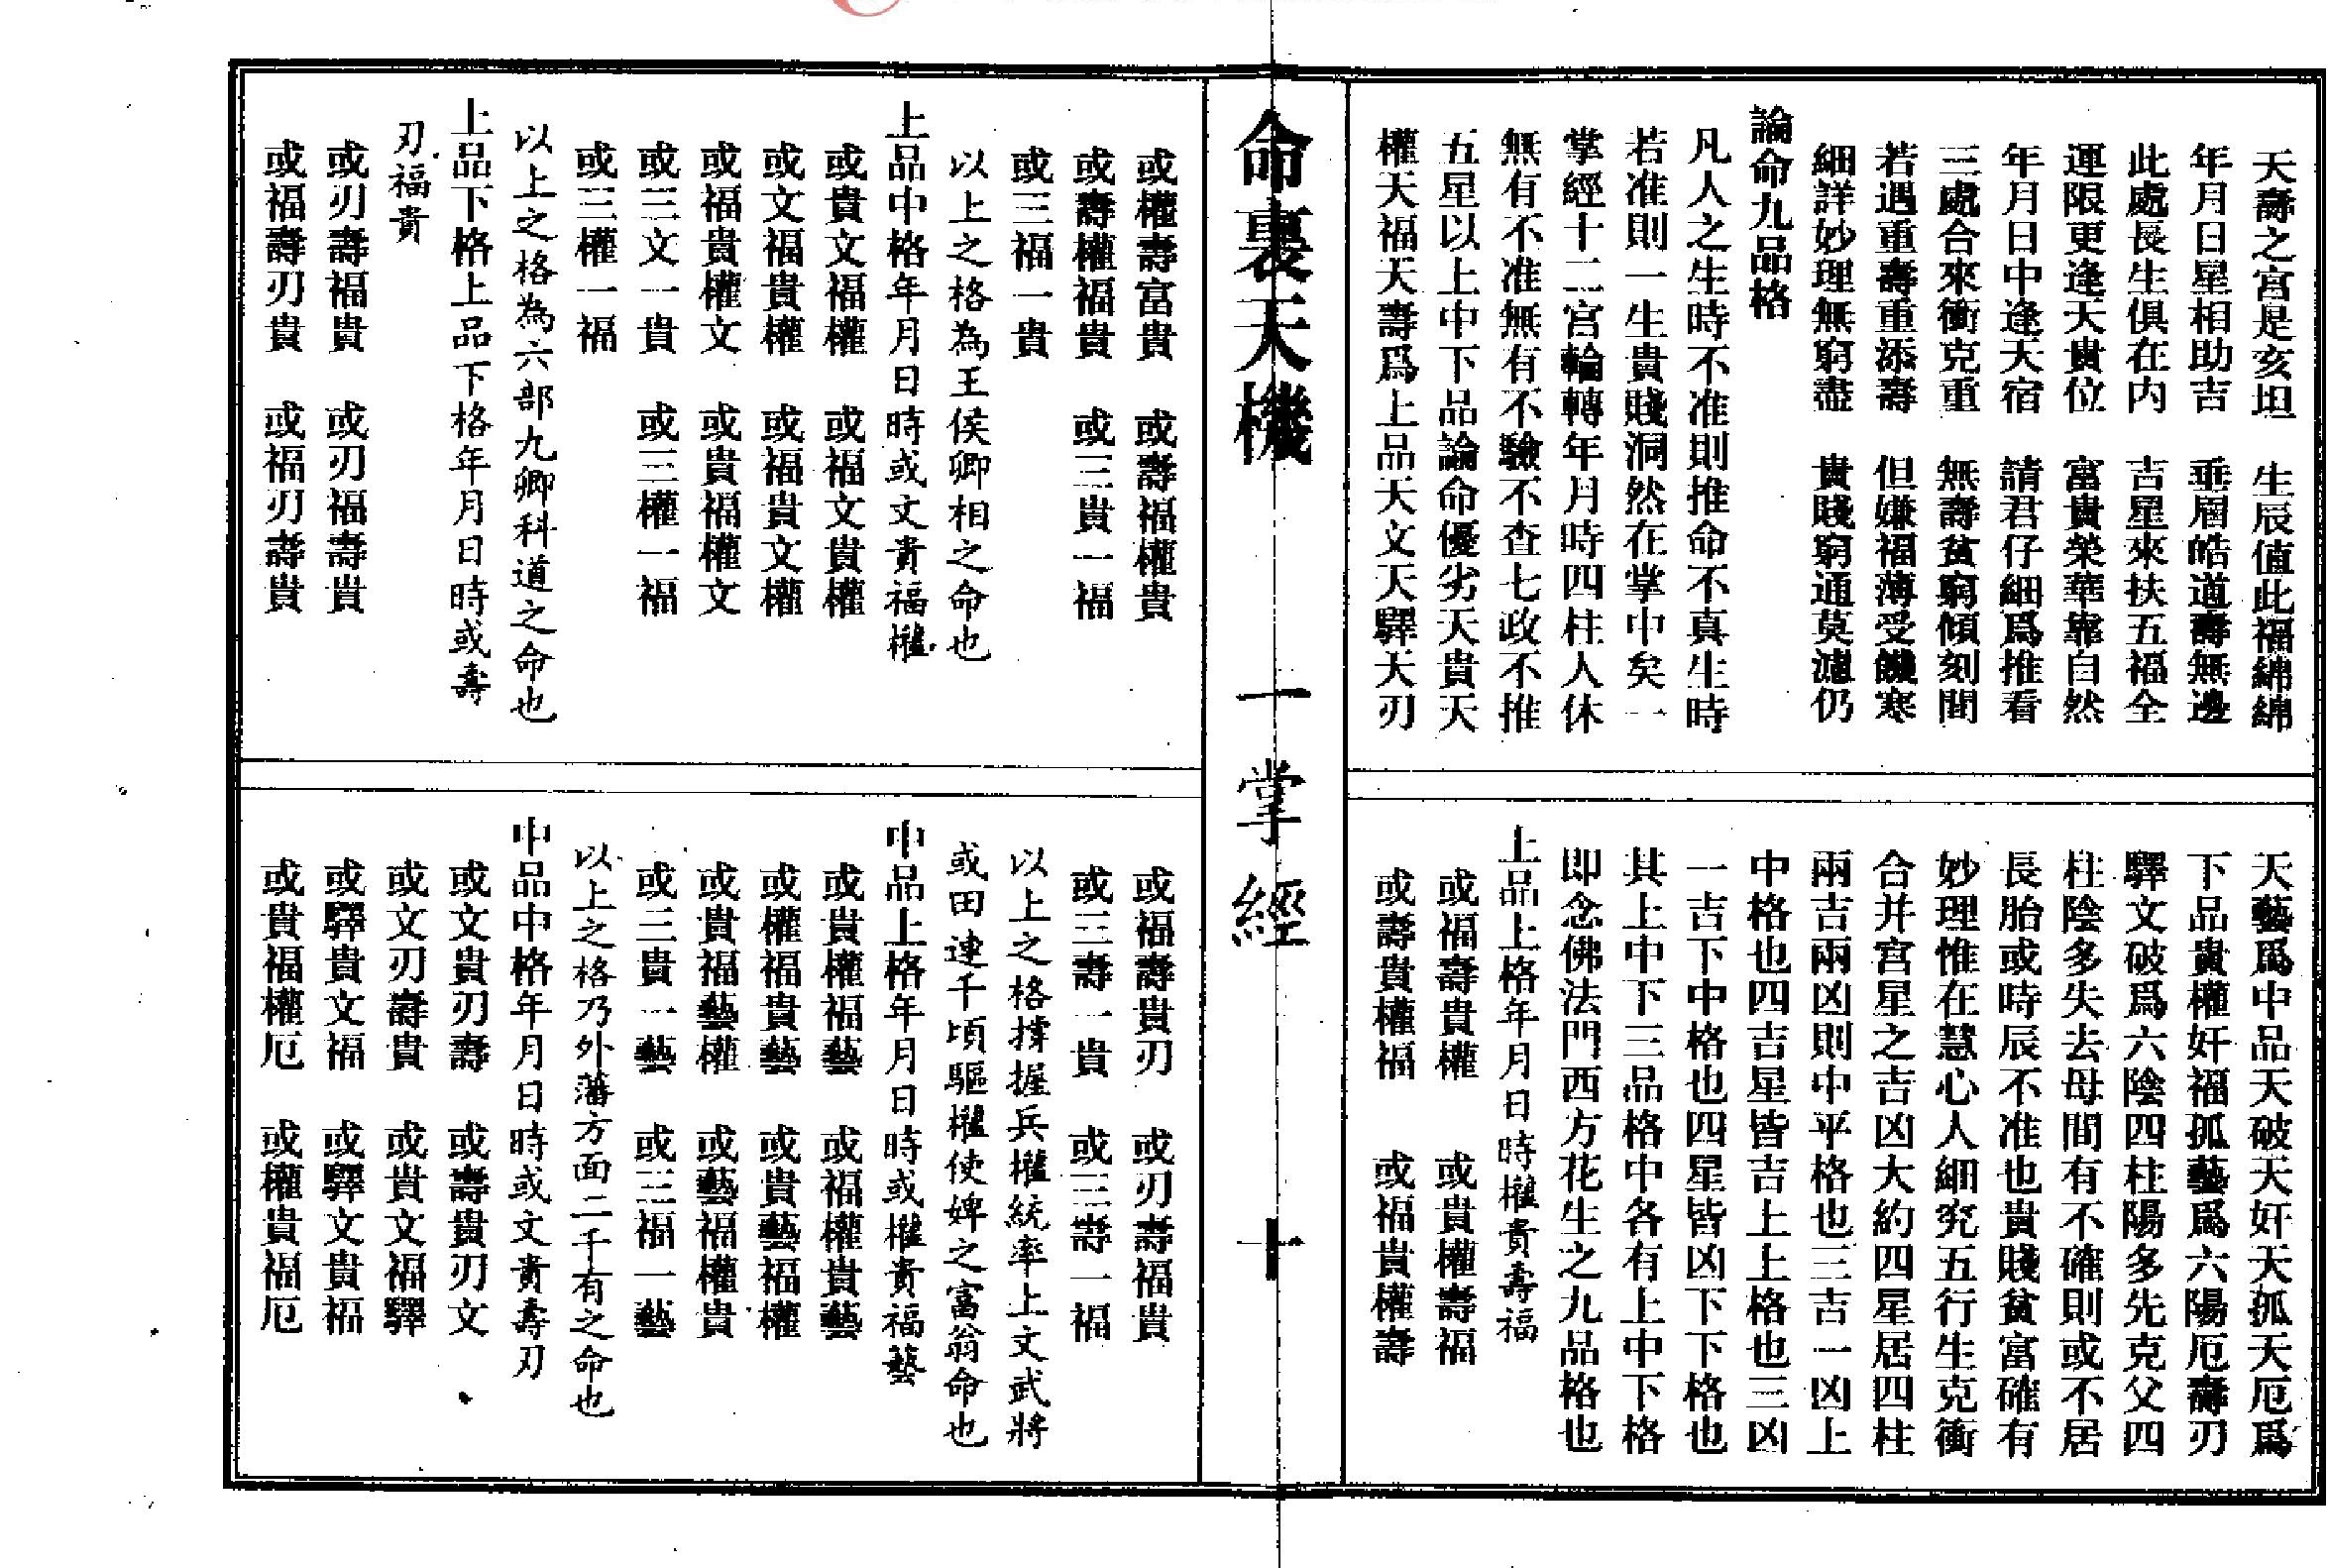 天壽之宮是亥坦　生辰值此福綿綿
年月日星相助吉　垂層皓道壽無邊
此處長生俱在內　吉星來扶五福全
運限更逢天貴位　富貴榮華靠自然
年月日中逢天宿　請君仔細爲推看
三處合來衝克重　無壽貧窮傾刻間
若遇重壽重添壽　但嫌福薄受饑寒
細詳妙理無窮盡　貴賤窮通莫濾仍
論命九品格
凡人之生時不准則推命不真生時
若准則一生貴賤洞然在掌中矣一
掌經十二宮輪轉年月時四柱人休
無有不准無有不驗不查七政不推
五星以上中下品論命優劣天貴天
權天福天壽爲上品天文天驛天刃
天藝爲中品天破天奸天孤天厄爲
下品貴權奸福孤藝爲六陽厄壽刃
驛文破爲六陰四柱陽多先克父四
柱陰多失去母間有不確則或不居
長胎或時辰不准也貴賤貧富確有
妙理惟在慧心人細究五行生克衝
合并宮星之吉凶大約四星居四柱
兩吉兩凶則中平格也三吉一凶上
中格也四吉星皆吉上上格也三凶
一吉下中格也四星皆凶下下格也
其上中下三品格中各有上中下格
即念佛法門西方花生之九品格也
上品上格年月日時權貴壽福
或福壽貴權　或貴權壽福
或壽貴權福　或福貴權壽
命裏天機　一掌經　十
或權壽富貴　或壽福權貴
或壽權福貴　或三貴一福
或三福一貴
以上之格為王侯卿相之命也
上品中格年月日時或文貴福權
或貴文福權　或福文貴權
或文福貴權　或福貴文權
或福貴權文　或貴福權文
或三文一貴　或三權一福
或三權一福
以上之格為六部九卿科道之命也
上品下格上品下格年月日時或壽
刃福貴
或刃壽福貴　或刃福壽貴
或福壽刃貴　或福刃壽貴
或福壽貴刃　或刃壽福貴
或三壽一貴　或三壽一福
以上之格擰握兵權統率上文武將
或田連千頃驅權使婢之富翁命也
中品上格年月日時或權貴福藝
或貴權福藝　或福權貴藝
或權福貴藝　或貴藝福權
或貴福藝權　或藝福權貴
或三貴一藝　或三福一藝
以上之格乃外藩方面二千有之命也
中品中格年月日時或文貴壽刃
或文貴刃壽　或壽貴刃文
或文刃壽貴　或貴文福驛
或驛貴文福　或驛文貴福
或貴福權厄　或權貴福厄